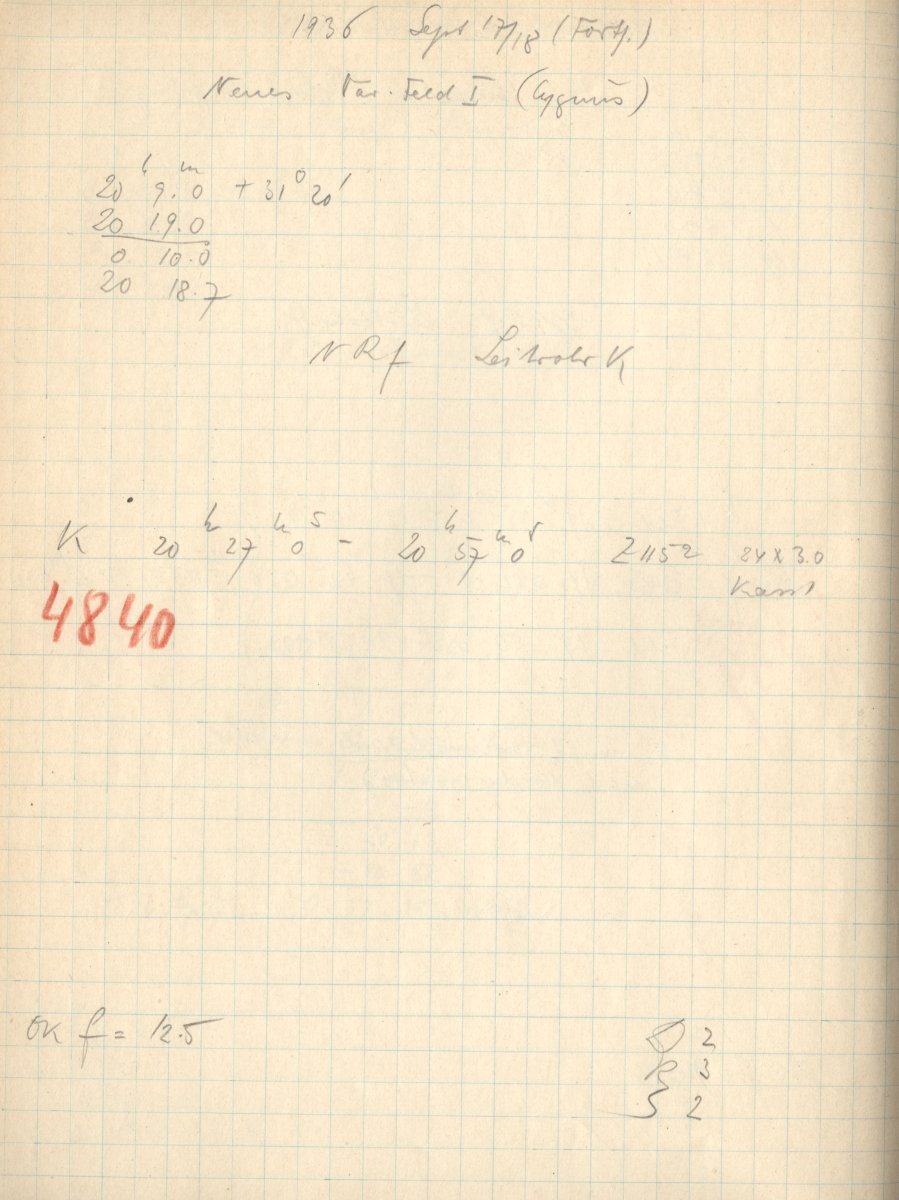 1936 Sept 17/18 (Forts.)
Neues Var. Feld I (Cygnus)
20ʰ 9.ᵐ0 + 31° 20'
20 19.0
0 10.0
20 18.7
NRf Leitrohr K
K 20ʰ 27ᵐ 0ˢ - 20ʰ 57ᵐ 0ˢ Z 1152 24 x 3.0
4840
OK f = 12.5
D 2
R 3
S 2